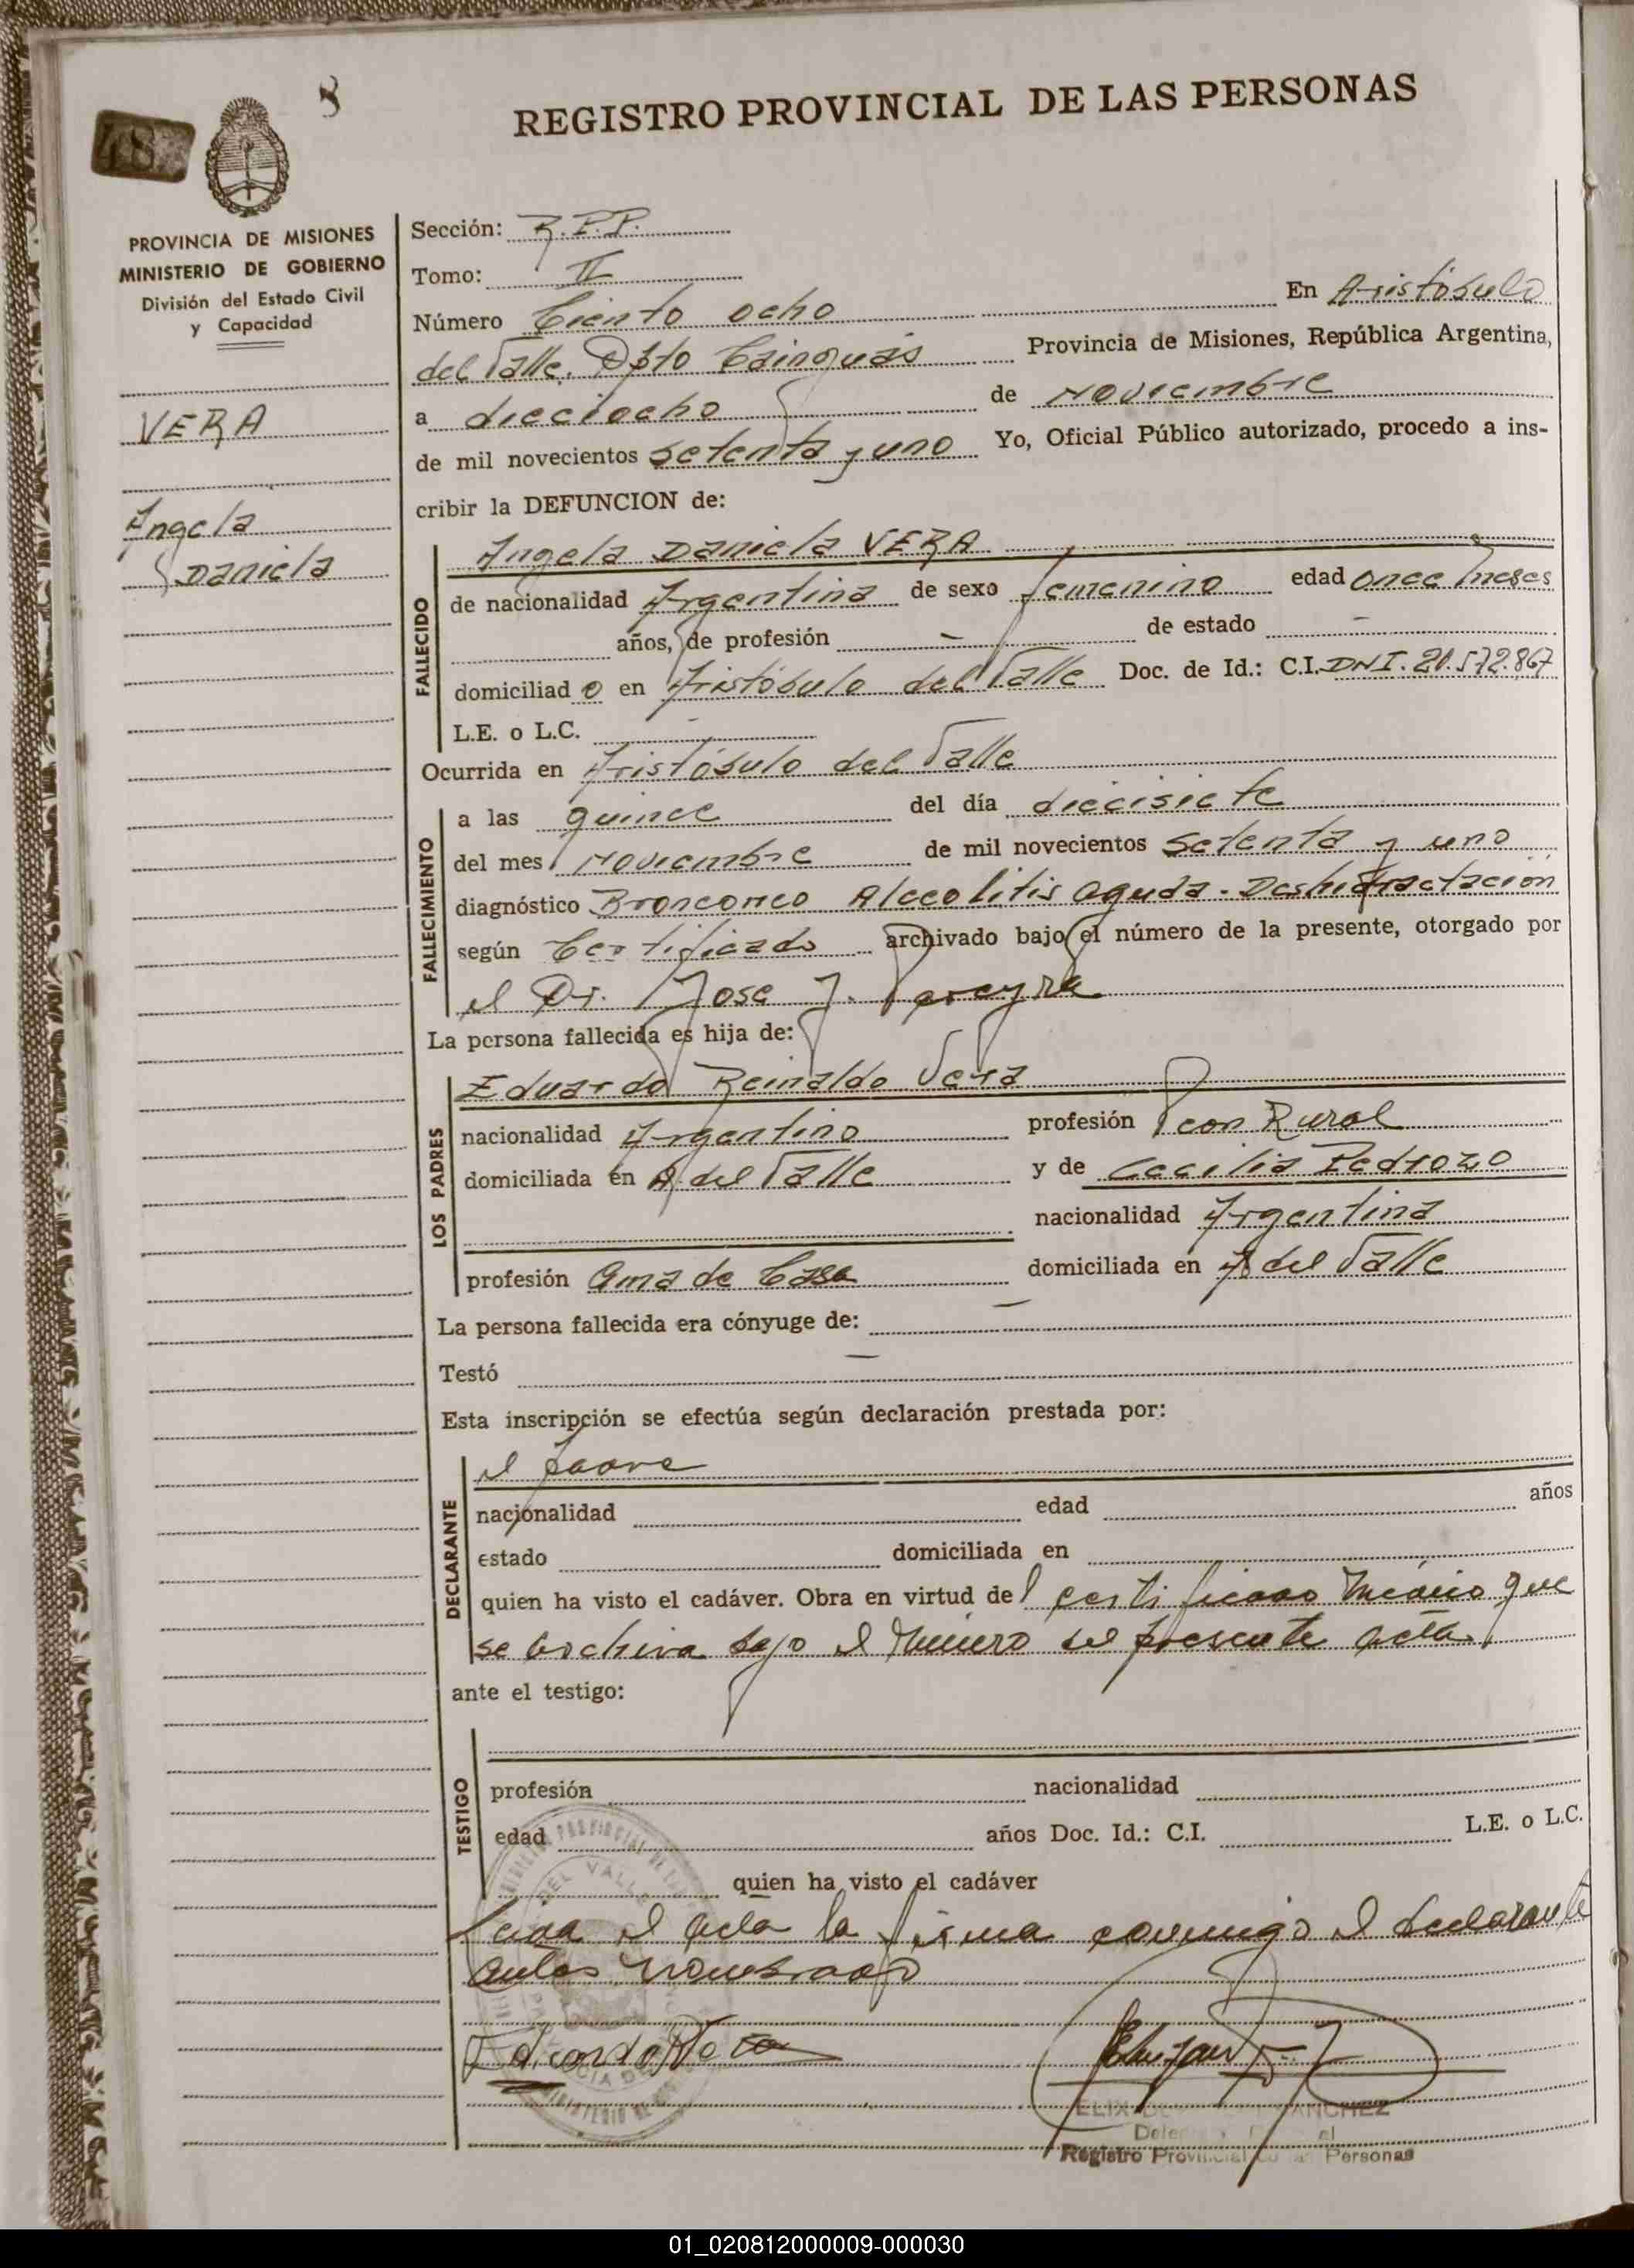 48
8
REGISTRO PROVINCIAL DE LAS PERSONAS
PROVINCIA DE MISIONES
MINISTERIO DE GOBIERNO
División del Estado Civil
y Capacidad
VERA
Angela
Daniela
Sección: R.P.P.
Tomo: II
Número Ciento ocho En Aristóbulo
del Valle. Dpto Cainguás Provincia de Misiones, República Argentina,
a dieciocho de Noviembre
de mil novecientos setenta y uno Yo, Oficial Público autorizado, procedo a ins-
cribir la DEFUNCION de:
FALLECIDO
Angela Daniela VERA
de nacionalidad Argentina de sexo femenino edad once meses
años, de profesión - de estado -
domiciliado en Aristóbulo del Valle Doc. de Id.: C.I. DNI. 21.572.867
L.E. o L.C. -
Ocurrida en Aristóbulo del Valle
FALLECIMIENTO
a las quince del día diecisiete
del mes Noviembre de mil novecientos setenta y uno
diagnóstico Bronconeo Alceolitis aguda - Deshidractación
según Certificado archivado bajo el número de la presente, otorgado por
el Dr. Jose J. Pereyra
La persona fallecida es hija de:
LOS PADRES
Eduardo Reinaldo Vera
nacionalidad Argentino profesión Peon Rural
domiciliada en A. del Valle y de Cecilia Pedrozo
nacionalidad Argentina
profesión Ama de Casa domiciliada en A. del Valle
La persona fallecida era cónyuge de: -
Testó -
Esta inscripción se efectúa según declaración prestada por:
DECLARANTE
el padre
nacionalidad edad años
estado domiciliada en
quien ha visto el cadáver. Obra en virtud del certificado médico que
se archiva bajo el número del presente acta
ante el testigo:
TESTIGO
profesión nacionalidad
edad años Doc. Id.: C.I. L.E. o L.C.
quien ha visto el cadáver
Leida el acta la firma conmigo el declarante
antes nombrado
Eduardo R Vera
DEL VALLE
SANCHEZ
Registro Provincial de las Personas
01_020812000009-000030